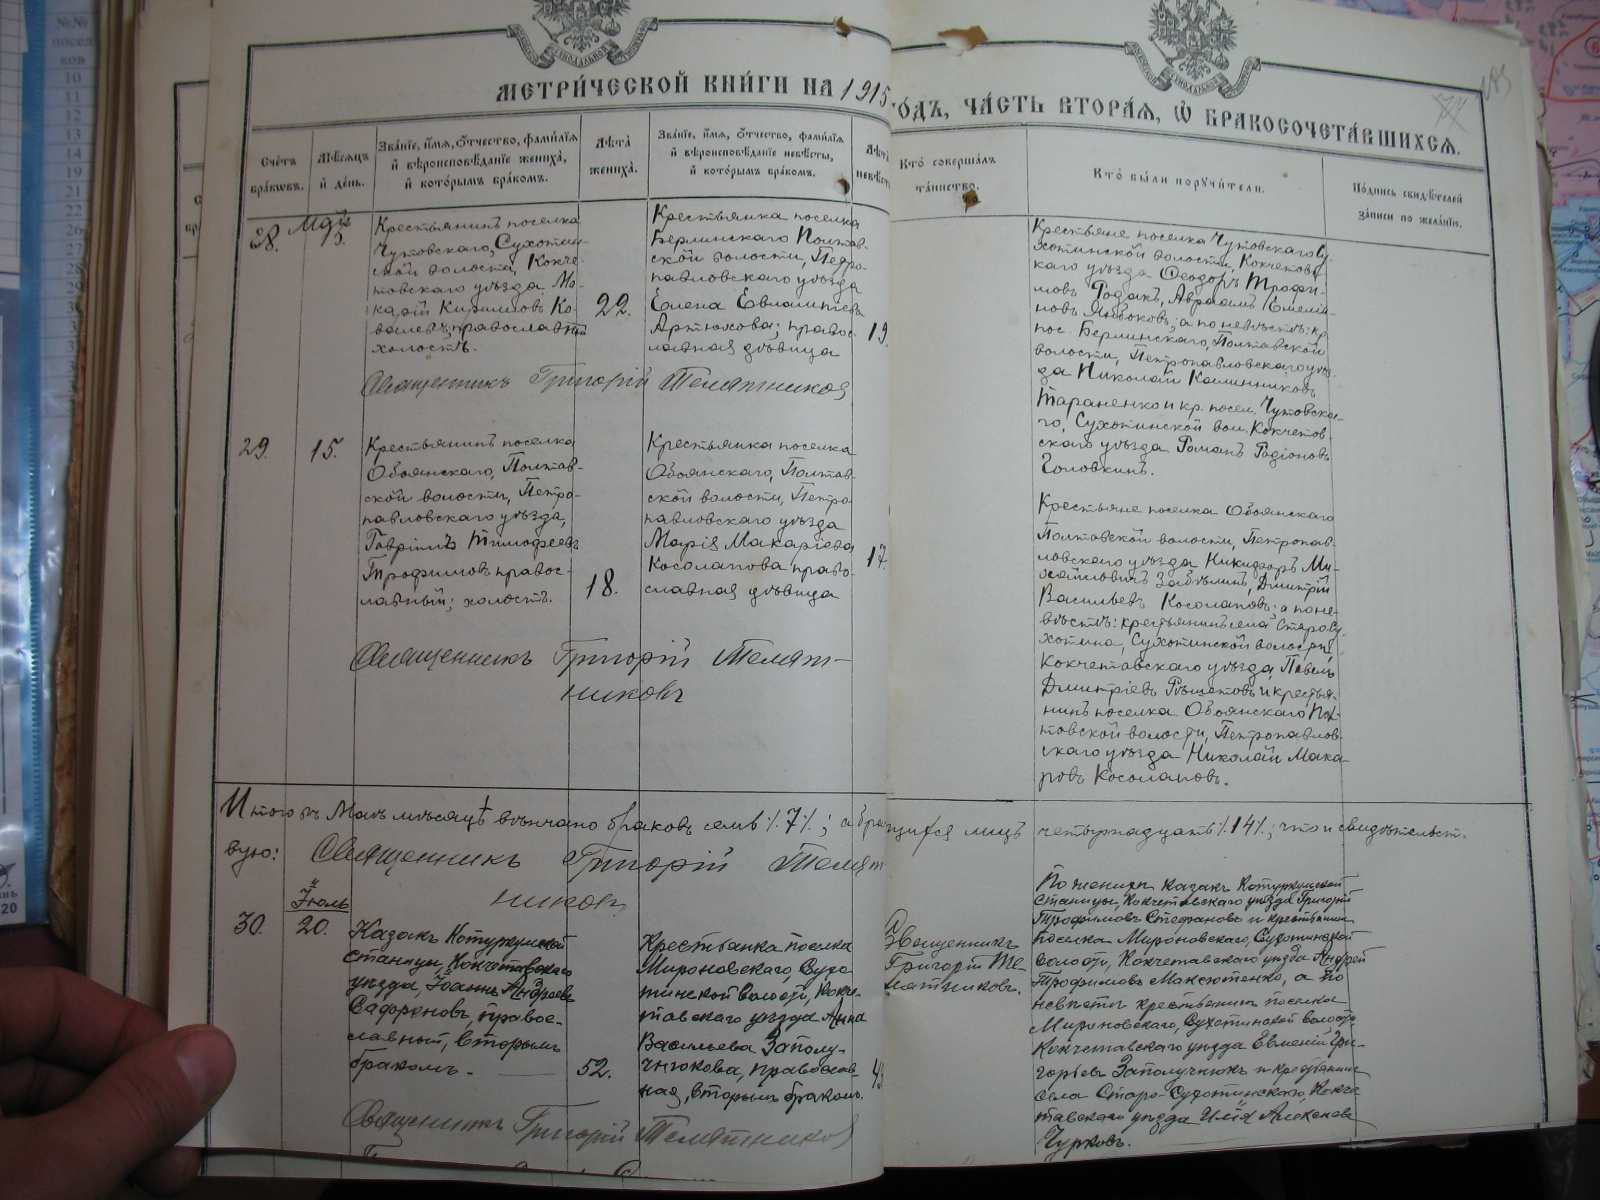 МЕТРИ́ЧЕСКОЙ КНИ́ГИ НА 1915
ОДЪ, ЧА́СТЬ ВТОРА́Я, Ѡ БРАКОСОЧЕТА́ВШИХСЯ.
Счетъ бра́ковъ.
Мѣ́сяцъ и́ де́нь.
Зва́нїе, и́мя, о́тчество, фами́лїя и́ вѣроисповѣ́данїе жениха̀, и́ кото́рымъ бра́комъ.
Лѣ́та жениха̀.
Зва́нїе, и́мя, о́тчество, фами́лїя и́ вѣроисповѣ́данїе невѣ́сты, и́ кото́рымъ бра́комъ.
Лѣ́та
невѣ́ст
Кто̀ соверша́лъ та́инство.
Кто̀ бы́ли поручи́тели.
По́дпись свидѣ́телей за́писи по жела́нїю.
28.
Крестьянинъ поселка
Чутовскаго, Сухотин-
ской волости, Кокче-
товскаго уѣзда Ма-
карій Кириловъ Ко-
валевъ, православный
холостъ.
22.
Крестьянка поселка
Берлинскаго Полтав-
ской волости, Петро-
павловскаго уѣзда
Елена Евлампіева
Артюхова; правос-
лавная дѣвица
19.
Крестьяне поселка Чутовскаго Су-
хотинской волости, Кокчетавс-
каго уѣзда Ѳеодоръ Трофи-
мовъ Авраамъ Емели-
новъ а по невѣстѣ: кр.
пос. Берлинскаго, Полтавской
волости, Петропавловскаго уѣз-
да Николай Калинниковъ
Тараненко и кр. посел. Чутовска-
го, Сухотинской вол. Кокчетов-
скаго уѣзда Романъ Родіоновъ
Головкинъ.
Священникъ Григорій Телятниковъ
29.
15.
Крестьянинъ поселка
Обоянскаго, Полтав-
ской волости, Петро-
павловскаго уѣзда,
Гавріилъ Тимофеевъ
Трофимовъ правос-
лавный; холостъ.
18.
Крестьянка поселка
Обоянскаго, Полтав-
ской волости, Петро-
павловскаго уѣзда
Марія Макаріева
Косолапова, право-
славная дѣвица
17.
Крестьяне поселка Обоянскаго
Полтавской волости, Петропав-
ловскаго уѣзда Никифоръ Ми-
хайловичъ Забѣлинъ, Дмитрій
Васильевъ Косолаповъ; а по не-
вѣстѣ: крестьянинъ села Старо Су-
хотина, Сухотинской волости,
Кокчетавскаго уѣзда, Павелъ
Дмитріевъ Рѣшетовъ и крестья-
нинъ поселка Обоянскаго Пол-
товской волости, Петропавлов-
скаго уѣзда Николай Мака-
ровъ Косолаповъ.
Священникъ Григорій Телят-
никовъ
Итого въ Маѣ мѣсяцѣ вѣнчано браковъ семь /.7/.; а бращихся лицъ четырнадцать /.14/.; что и свидѣтельст-
вую: Священникъ Григорій Телят
никовъ
Іюль
30.
20.
Казакъ Котуркульской
станицы, Кокчетавскаго
уѣзда, Іоаннъ Андреевъ
Сафроновъ, правос-
лавный, вторымъ
бракомъ.
52.
Крестьянка поселка
Мироновскаго, Сухо-
тинской волости, Кокче-
тавскаго уѣзда Анна
Васильева Заполу-
чнюкова, православ-
ная, вторымъ бракомъ.
Священникъ
Григорій Те-
лятниковъ.
По женихѣ казакъ Котуркульской
станицы, Кокчетавскаго уѣзда Григорій
Трофимовъ Стефановъ и крестьянинъ
поселка Мироновскаго, Сухотинской
волости, Кокчетавскаго уѣзда Андрей
Трофимовъ Максютенко, а по
невѣстѣ крестьянинъ поселка
Мироновскаго, Сухотинской волости
Кокчетавскаго уѣзда Евменій Гри-
горьевъ Заполучнюкъ и крестьянинъ
села Старо-Сухотинскаго, Кокче-
тавскаго уѣзда Илья Алексеевъ
Чурковъ.
Священникъ Григорій Телятниковъ